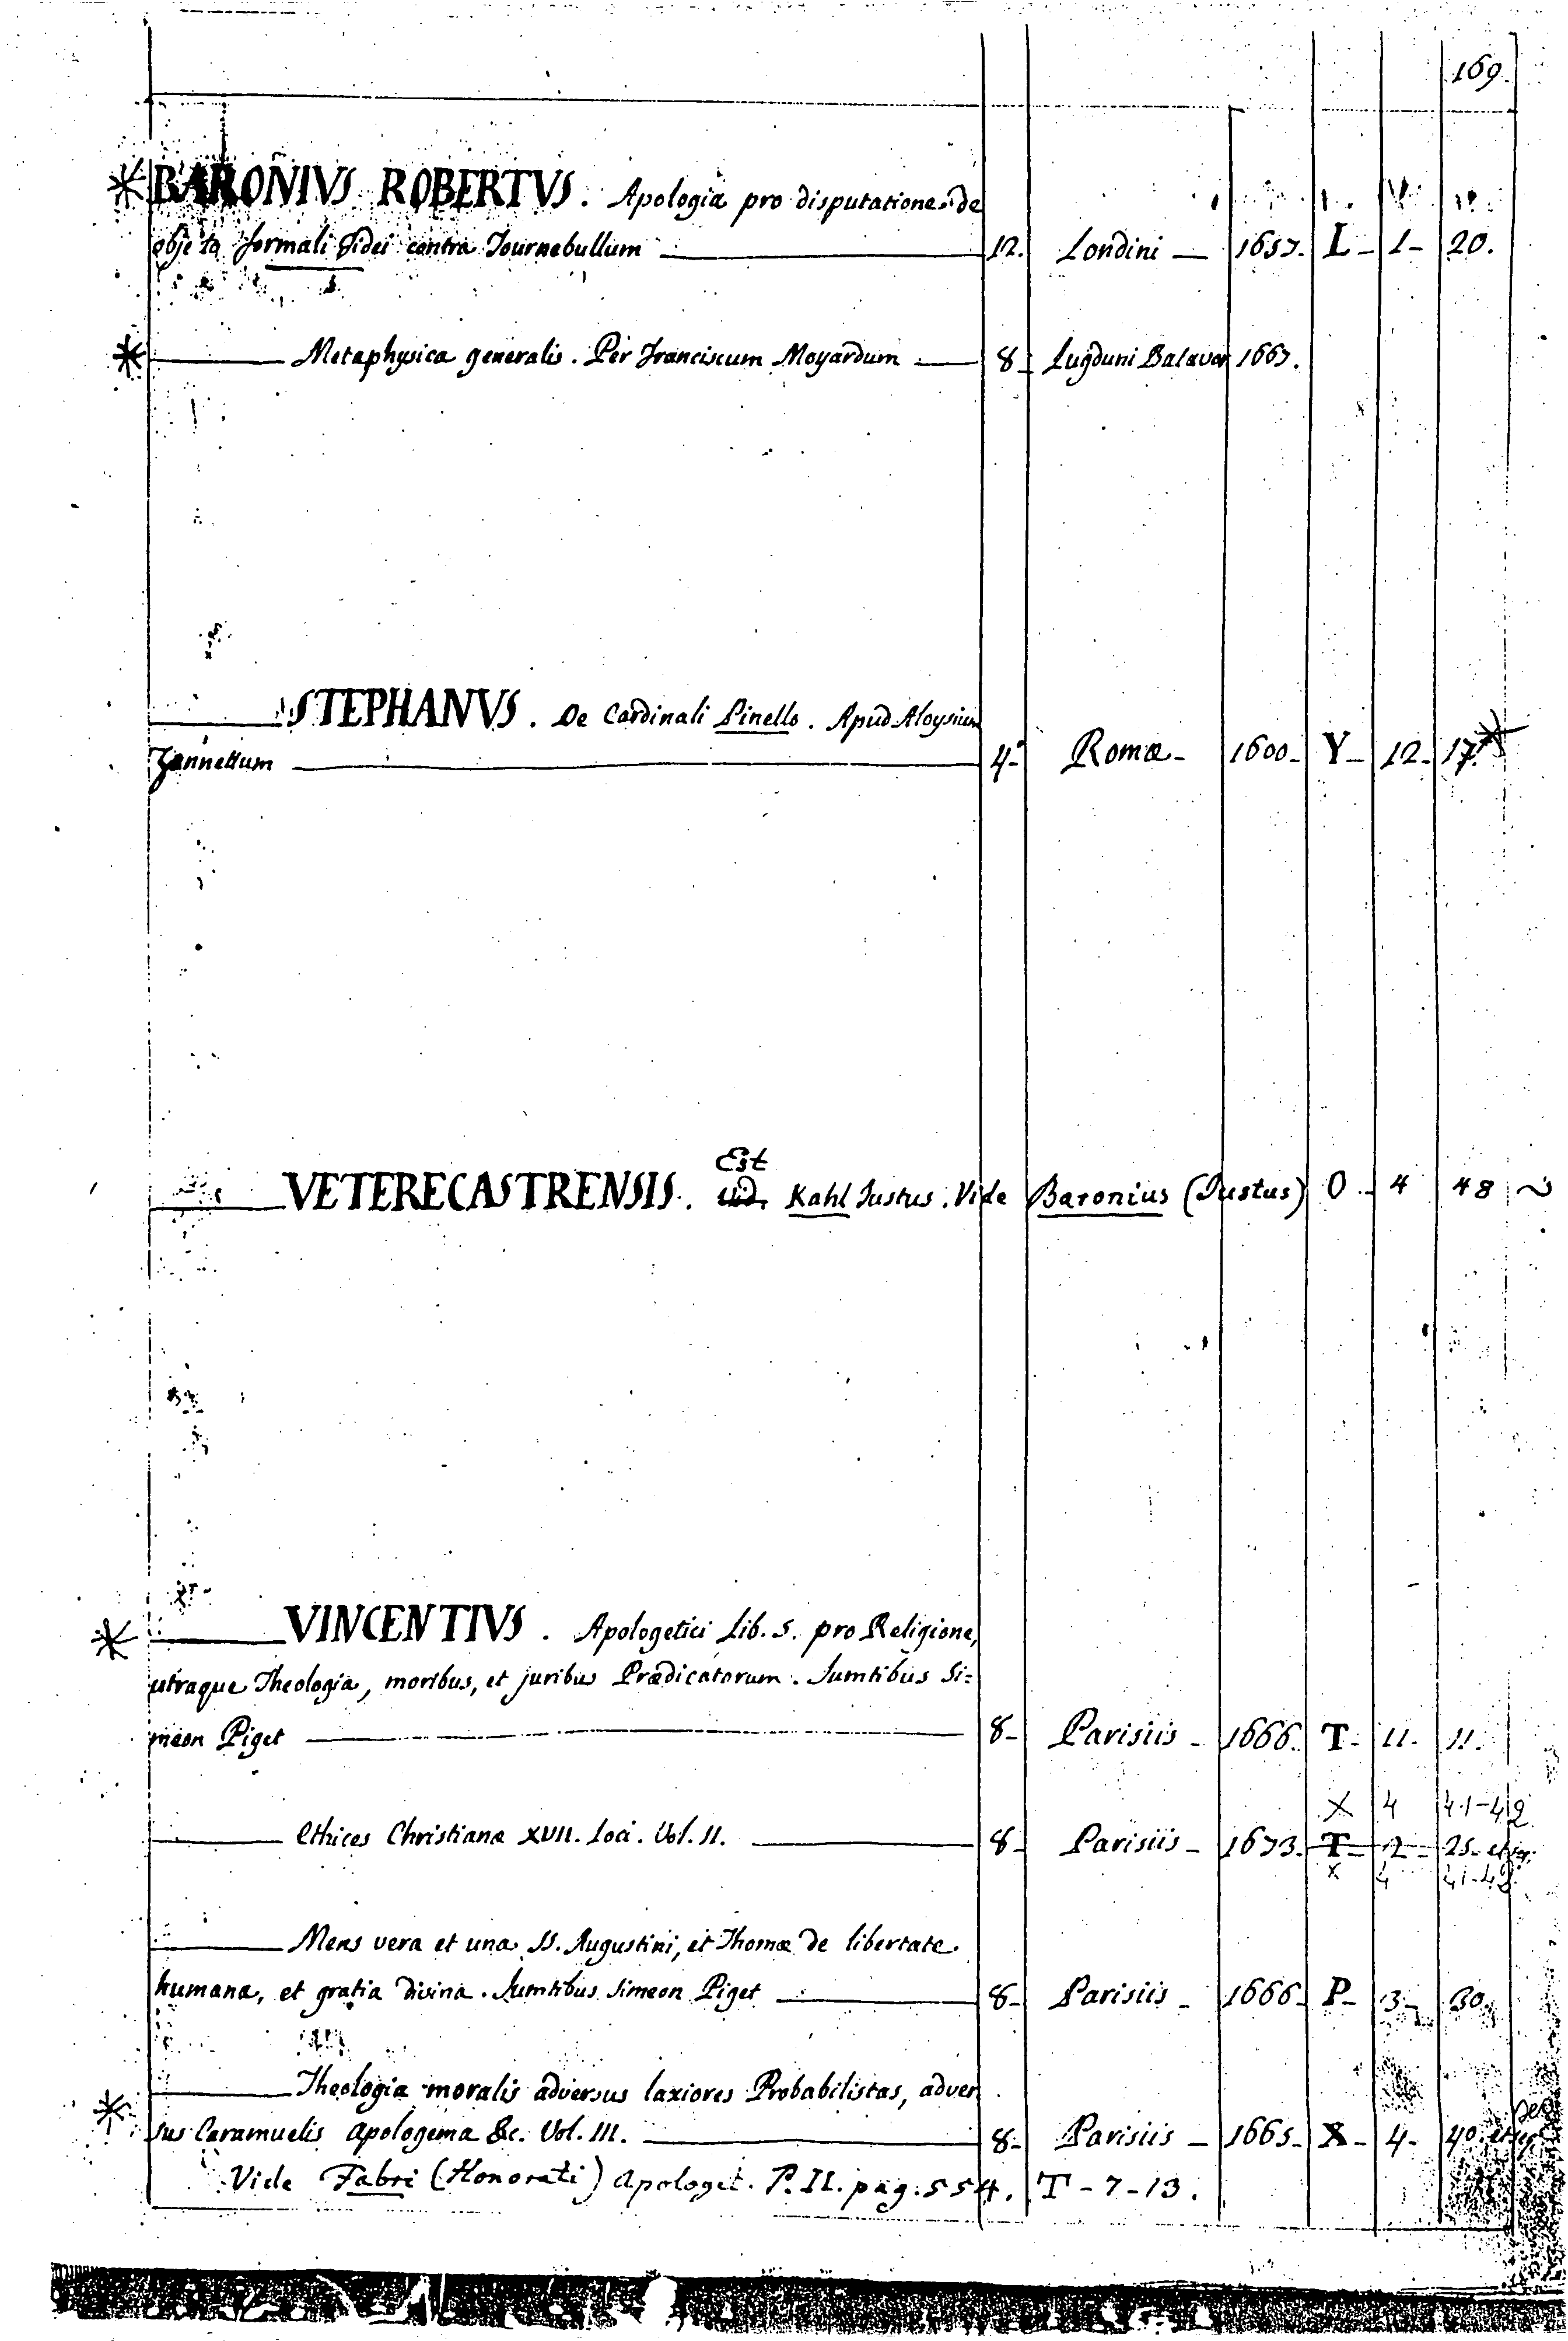 169.
* BARONIVS ROBERTVS. Apologia pro disputatione de
objecto formali Fidei contra Tournebullum — 12. Londini — 1657. L - 1 - 20.
* — Metaphysica generalis. Per Franciscum Moyardum — 8 - Lugduni Batavor 1667.
— STEPHANVS. De Cardinali Pinello. Apud Aloysium
Zannettum — 4 - Romæ - 1600 - Y - 12 - 17. *
Est
— VETERECASTRENSIS. Kahl Justus. Vide Baronius (Justus) O - 4 48 ~
* — VINCENTIVS. Apologetici Lib. 5. pro Religione,
utraque Theologia, moribus, et juribus Prædicatorum. Sumtibus Si=
meon Piget — 8 - Parisiis - 1666. T - 11. 11.
X 4 41-42
— Ethices Christianæ XVII. Loci. Vol. II. — 8 - Parisiis - 1673. T - 2 - 25 - et seq.
X 4 41-42.
— Mens vera et una SS. Augustini, et Thomæ de libertate
humana, et gratia divina. Sumtibus Simeon Piget — 8 - Parisiis - 1666 - P - 3 - 30.
— Theologia moralis adversus laxiores Probabilistas, adver
* sus Caramuelis Apologema &c. Vol. III. — 8 - Parisiis - 1665 - X - 4 - 40.
Vide Fabri (Honorati) Apologet. P. II. pag. 554. T - 7 - 13.